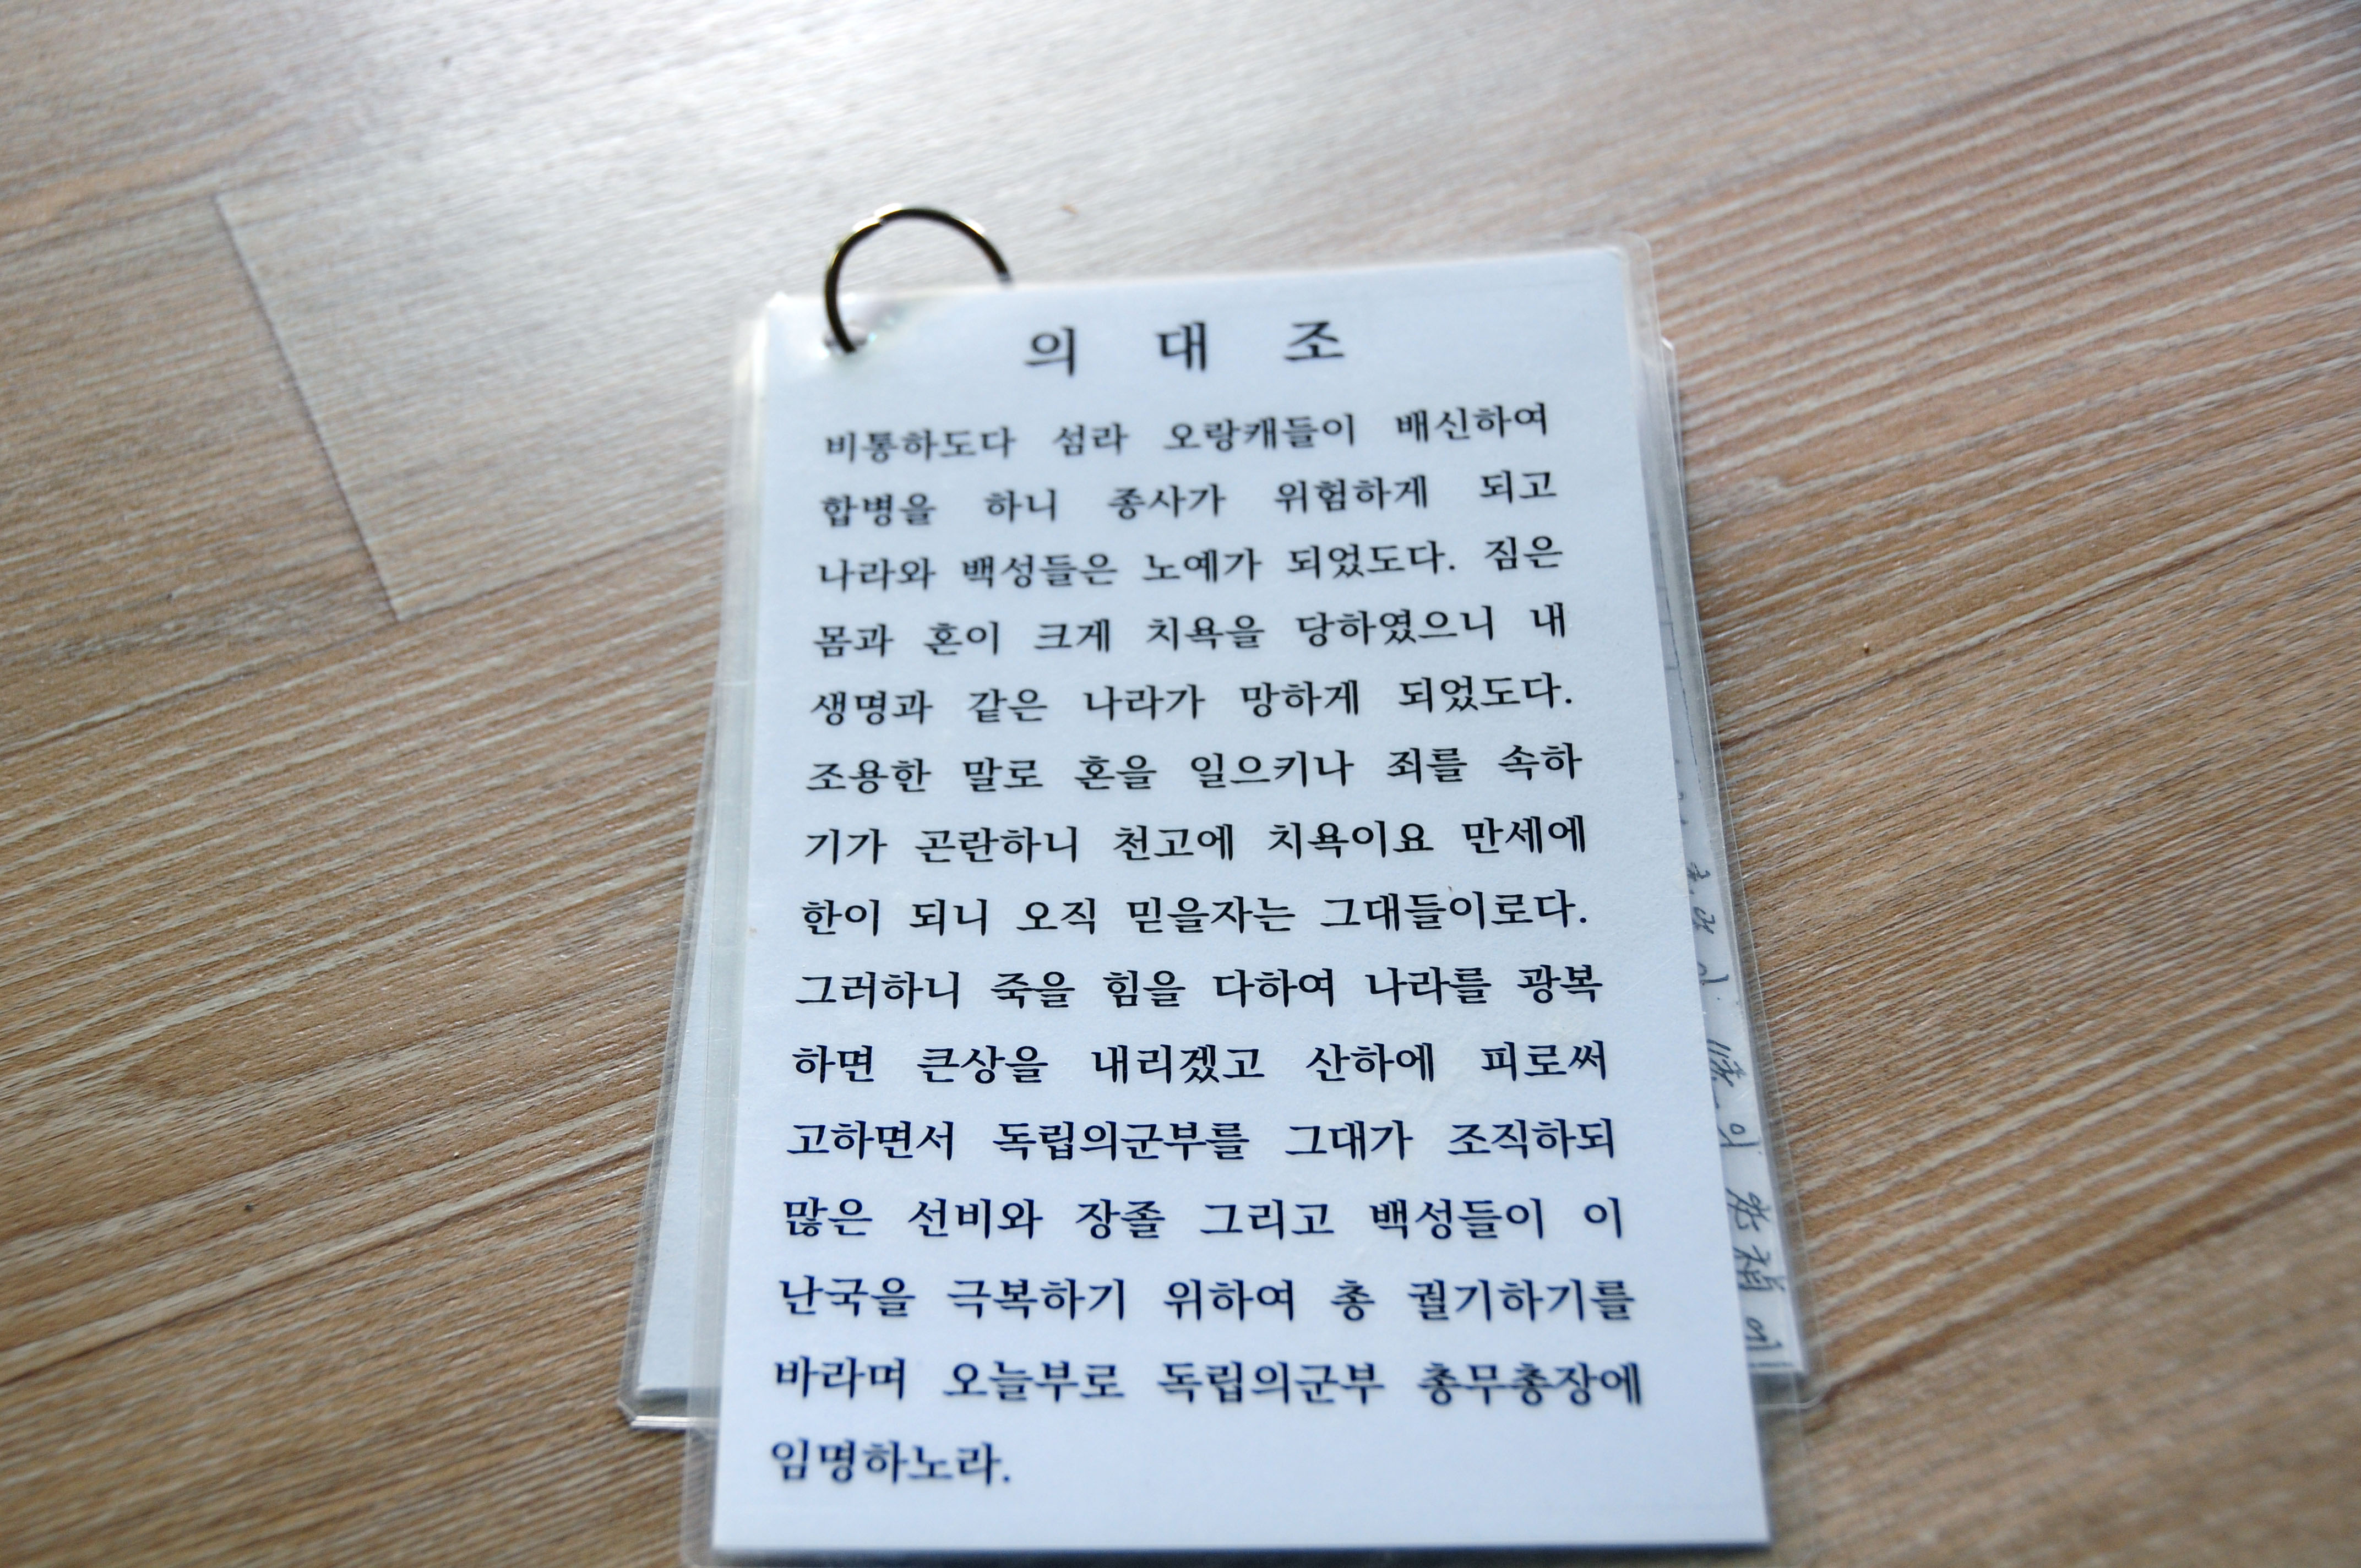 의 대 조
비통하도다 섬라 오랑캐들이 배신하여
합병을 하니 종사가 위험하게 되고
나라와 백성들은 노예가 되었도다. 짐은
몸과 혼이 크게 치욕을 당하였으니 내
생명과 같은 나라가 망하게 되었도다.
조용한 말로 혼을 일으키나 죄를 속하
기가 곤란하니 천고에 치욕이요 만세에
한이 되니 오직 믿을자는 그대들이로다.
그러하니 죽을 힘을 다하여 나라를 광복
하면 큰상을 내리겠고 산하에 피로써
고하면서 독립의군부를 그대가 조직하되
많은 선비와 장졸 그리고 백성들이 이
난국을 극복하기 위하여 총 궐기하기를
바라며 오늘부로 독립의군부 총무총장에
임명하노라.